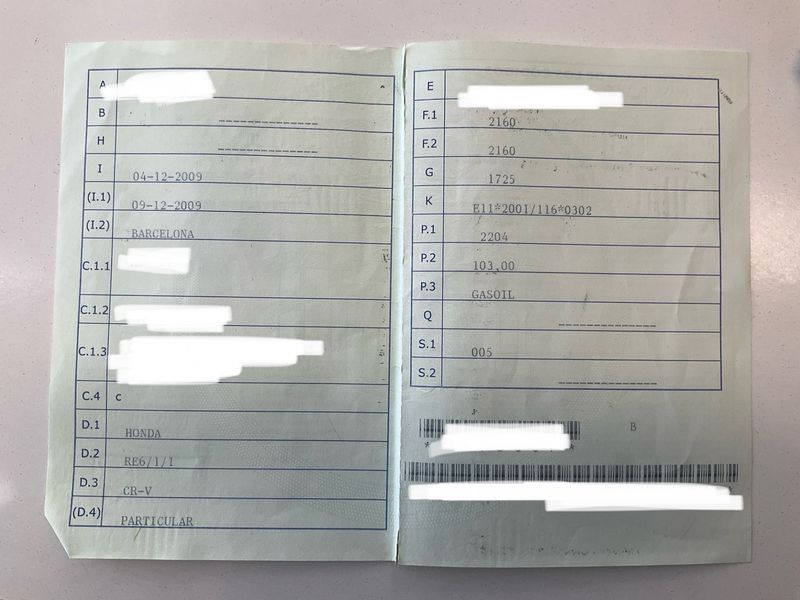 A
B --------------
H --------------
I 04-12-2009
(I.1) 09-12-2009
(I.2) BARCELONA
C.1.1
C.1.2
C.1.3
C.4 c
D.1 HONDA
D.2 RE6/1/1
D.3 CR-V
(D.4) PARTICULAR
E
F.1 2160
F.2 2160
G 1725
K E11*2001/116*0302
P.1 2204
P.2 103,00
P.3 GASOIL
Q --------------
S.1 005
S.2 --------------
B